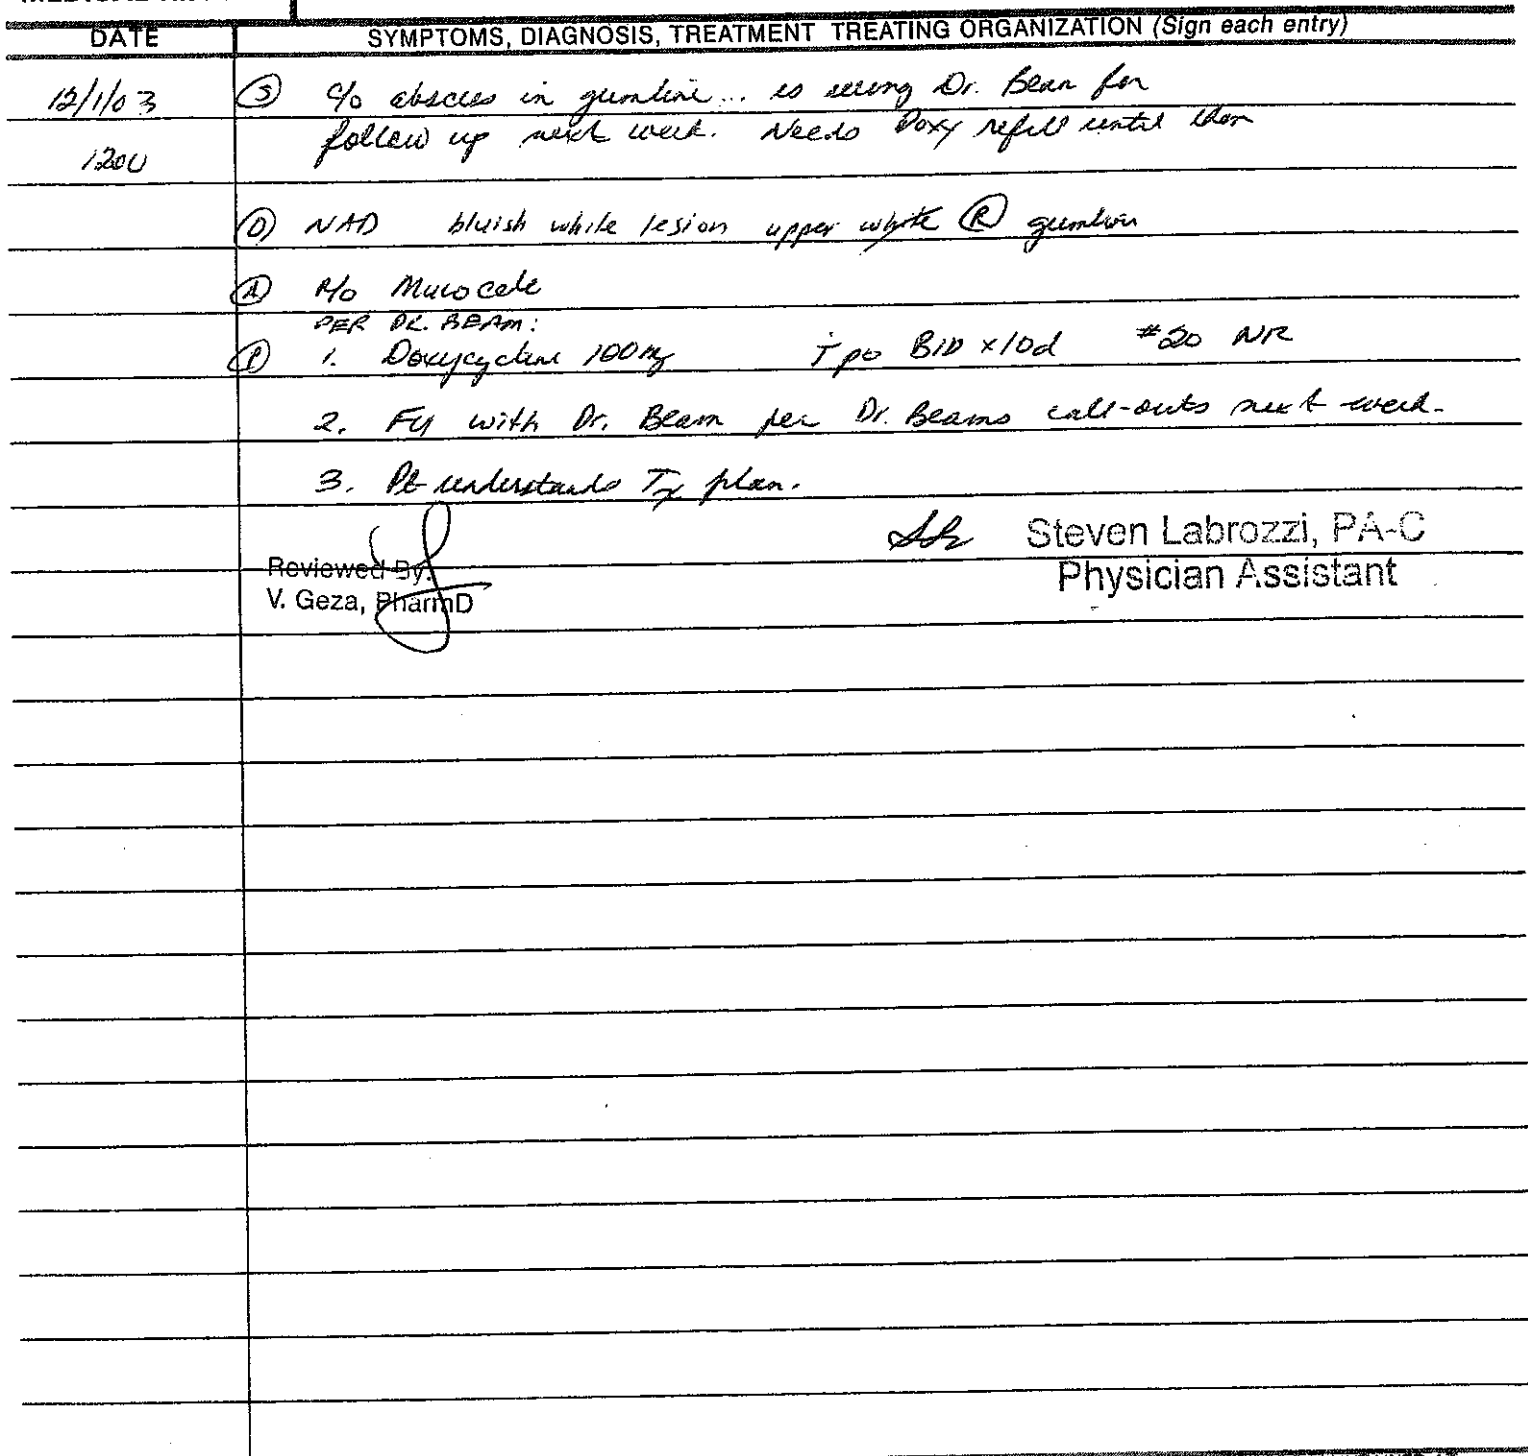 DATE SYMPTOMS, DIAGNOSIS, TREATMENT TREATING ORGANIZATION (Sign each entry)
12/1/03 Ⓢ c/o abscess in gumline... is seeing Dr. Beam for
follow up next week. Needs Doxy refill until then
1200
Ⓞ NAD bluish white lesion upper white Ⓡ gumline
Ⓐ R/o Mucocele
PER DR. BEAM:
Ⓟ 1. Doxycycline 100mg i po BID x10d #20 NR
2. FU with Dr. Beam per Dr. Beams call-outs next week.
3. Pt understands Tx plan.
Steven Labrozzi, PA-C
Physician Assistant
Reviewed By:
V. Geza, PharmD